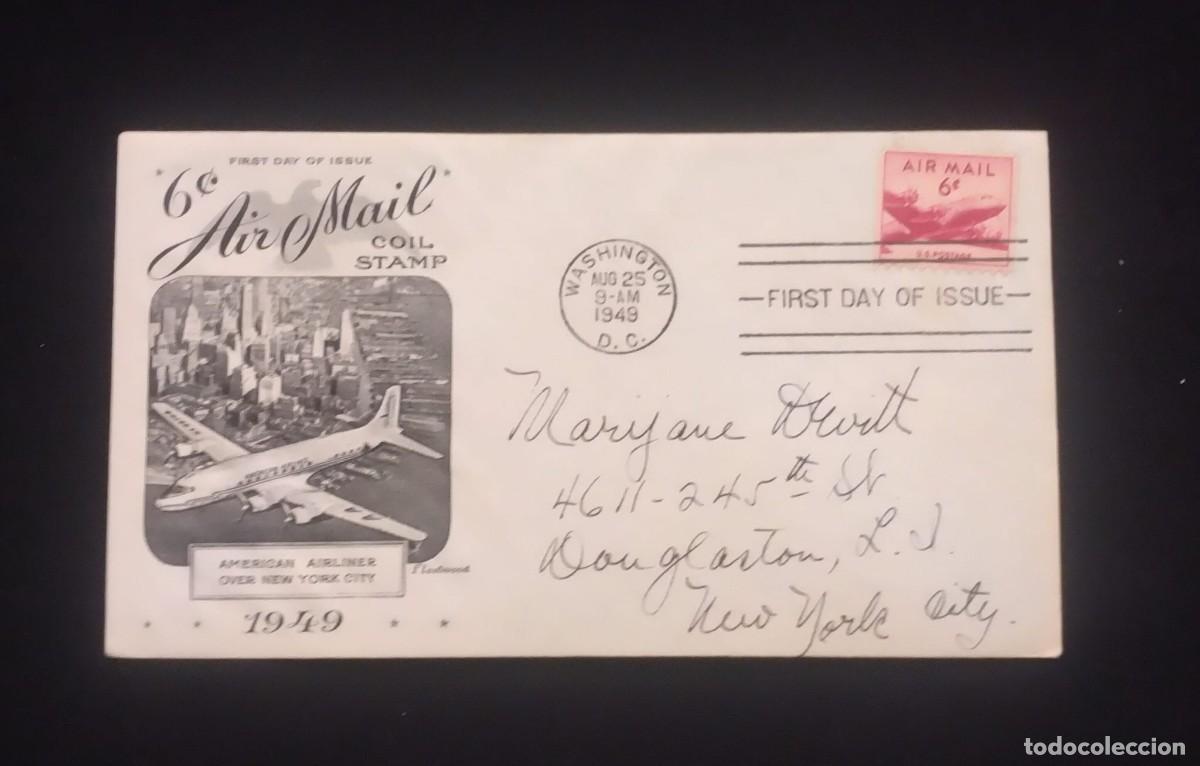 FIRST DAY OF ISSUE
6¢
Air Mail
COIL
STAMP
AMERICAN AIRLINER
OVER NEW YORK CITY
Fleetwood
1949
WASHINGTON
AUG 25
9-AM
1949
D. C.
AIR MAIL
6¢
U.S. POSTAGE
FIRST DAY OF ISSUE
Marijane Dewitt
4611-245th St
Douglaston, L. I.
New York City.
todocoleccion